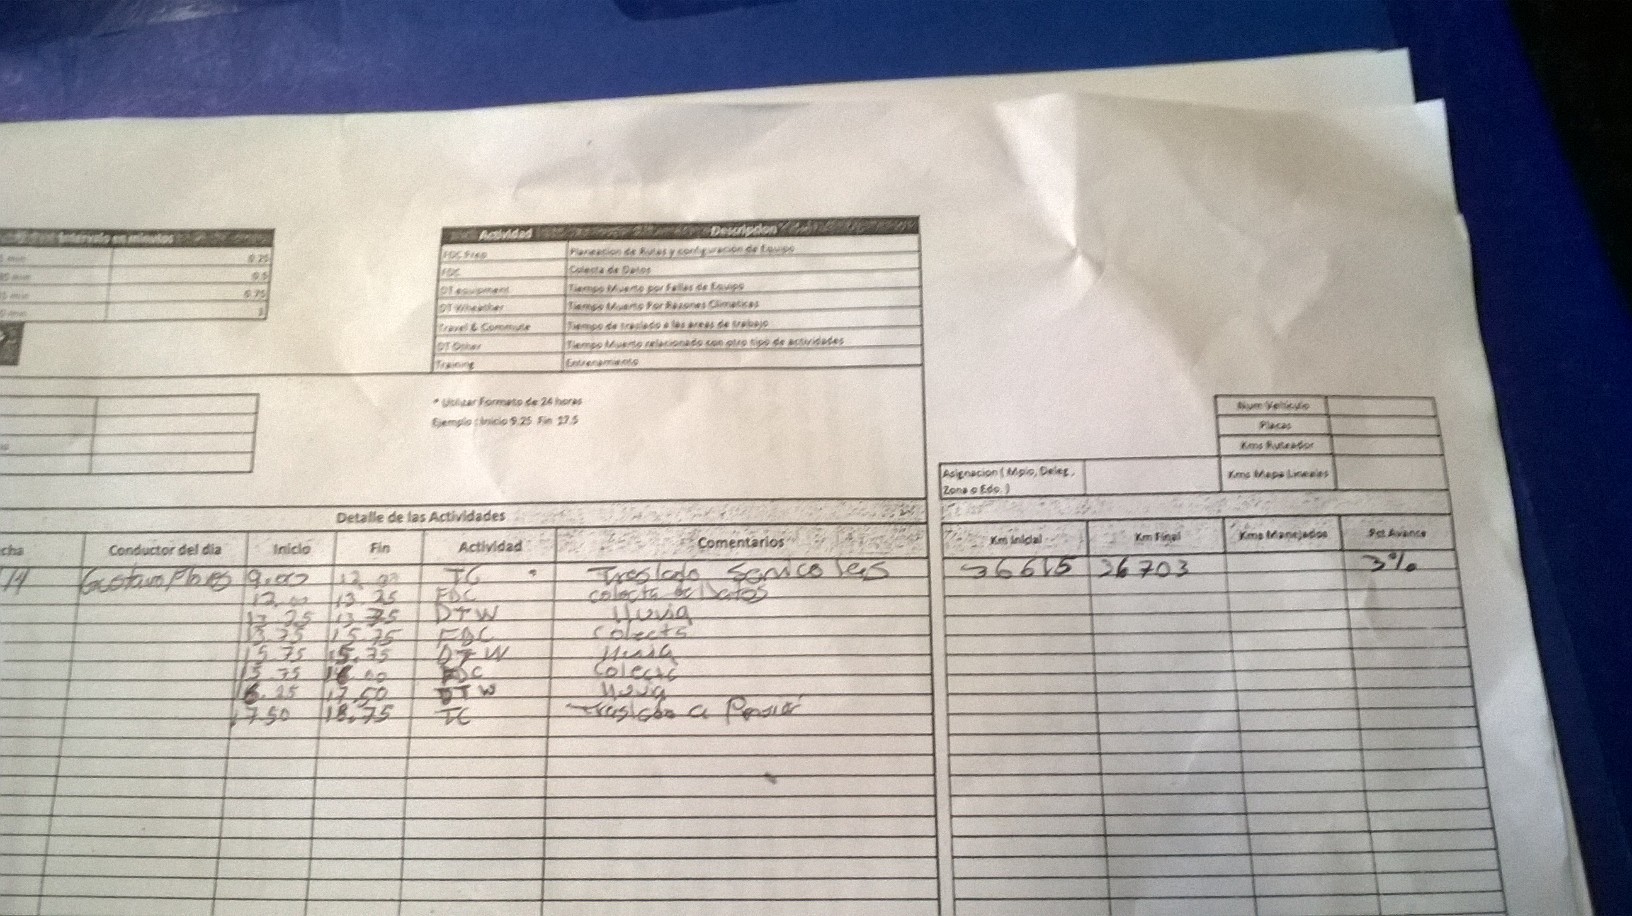 Intervalo en minutos
0.25
0.5
0.75
1
Actividad Descripcion
FDC Prep Planeacion de Rutas y configuracion de Equipo
FDC Colecta de Datos
DT equipment Tiempo Muerto por Fallas de Equipo
DT Wheather Tiempo Muerto Por Razones Climaticas
Travel & Commute Tiempo de traslado a las areas de trabajo
DT Other Tiempo Muerto relacionado con otro tipo de actividades
Training Entrenamiento
* Utilizar Formato de 24 horas
Ejemplo : Inicio 9.25 Fin 17.5
Num Vehiculo
Placas
Kms Ruteador
Kms Mapa Lineales
Asignacion ( Mpio, Deleg,
Zona o Edo. )
Detalle de las Actividades
cha Conductor del dia Inicio Fin Actividad Comentarios Km Inicial Km Final Kms Manejados Pct Avance
14 Gustavo Flores 9.00 12.00 TC Traslado 36615 36703 3%
12.00 13.25 FDC colecta de Datos
13.25 13.75 DTW lluvia
13.75 15.75 FDC Colecta
15.75 DTW lluvia
FDC Colecta
17.50 DTW lluvia
17.50 18.75 TC Traslado a Pension